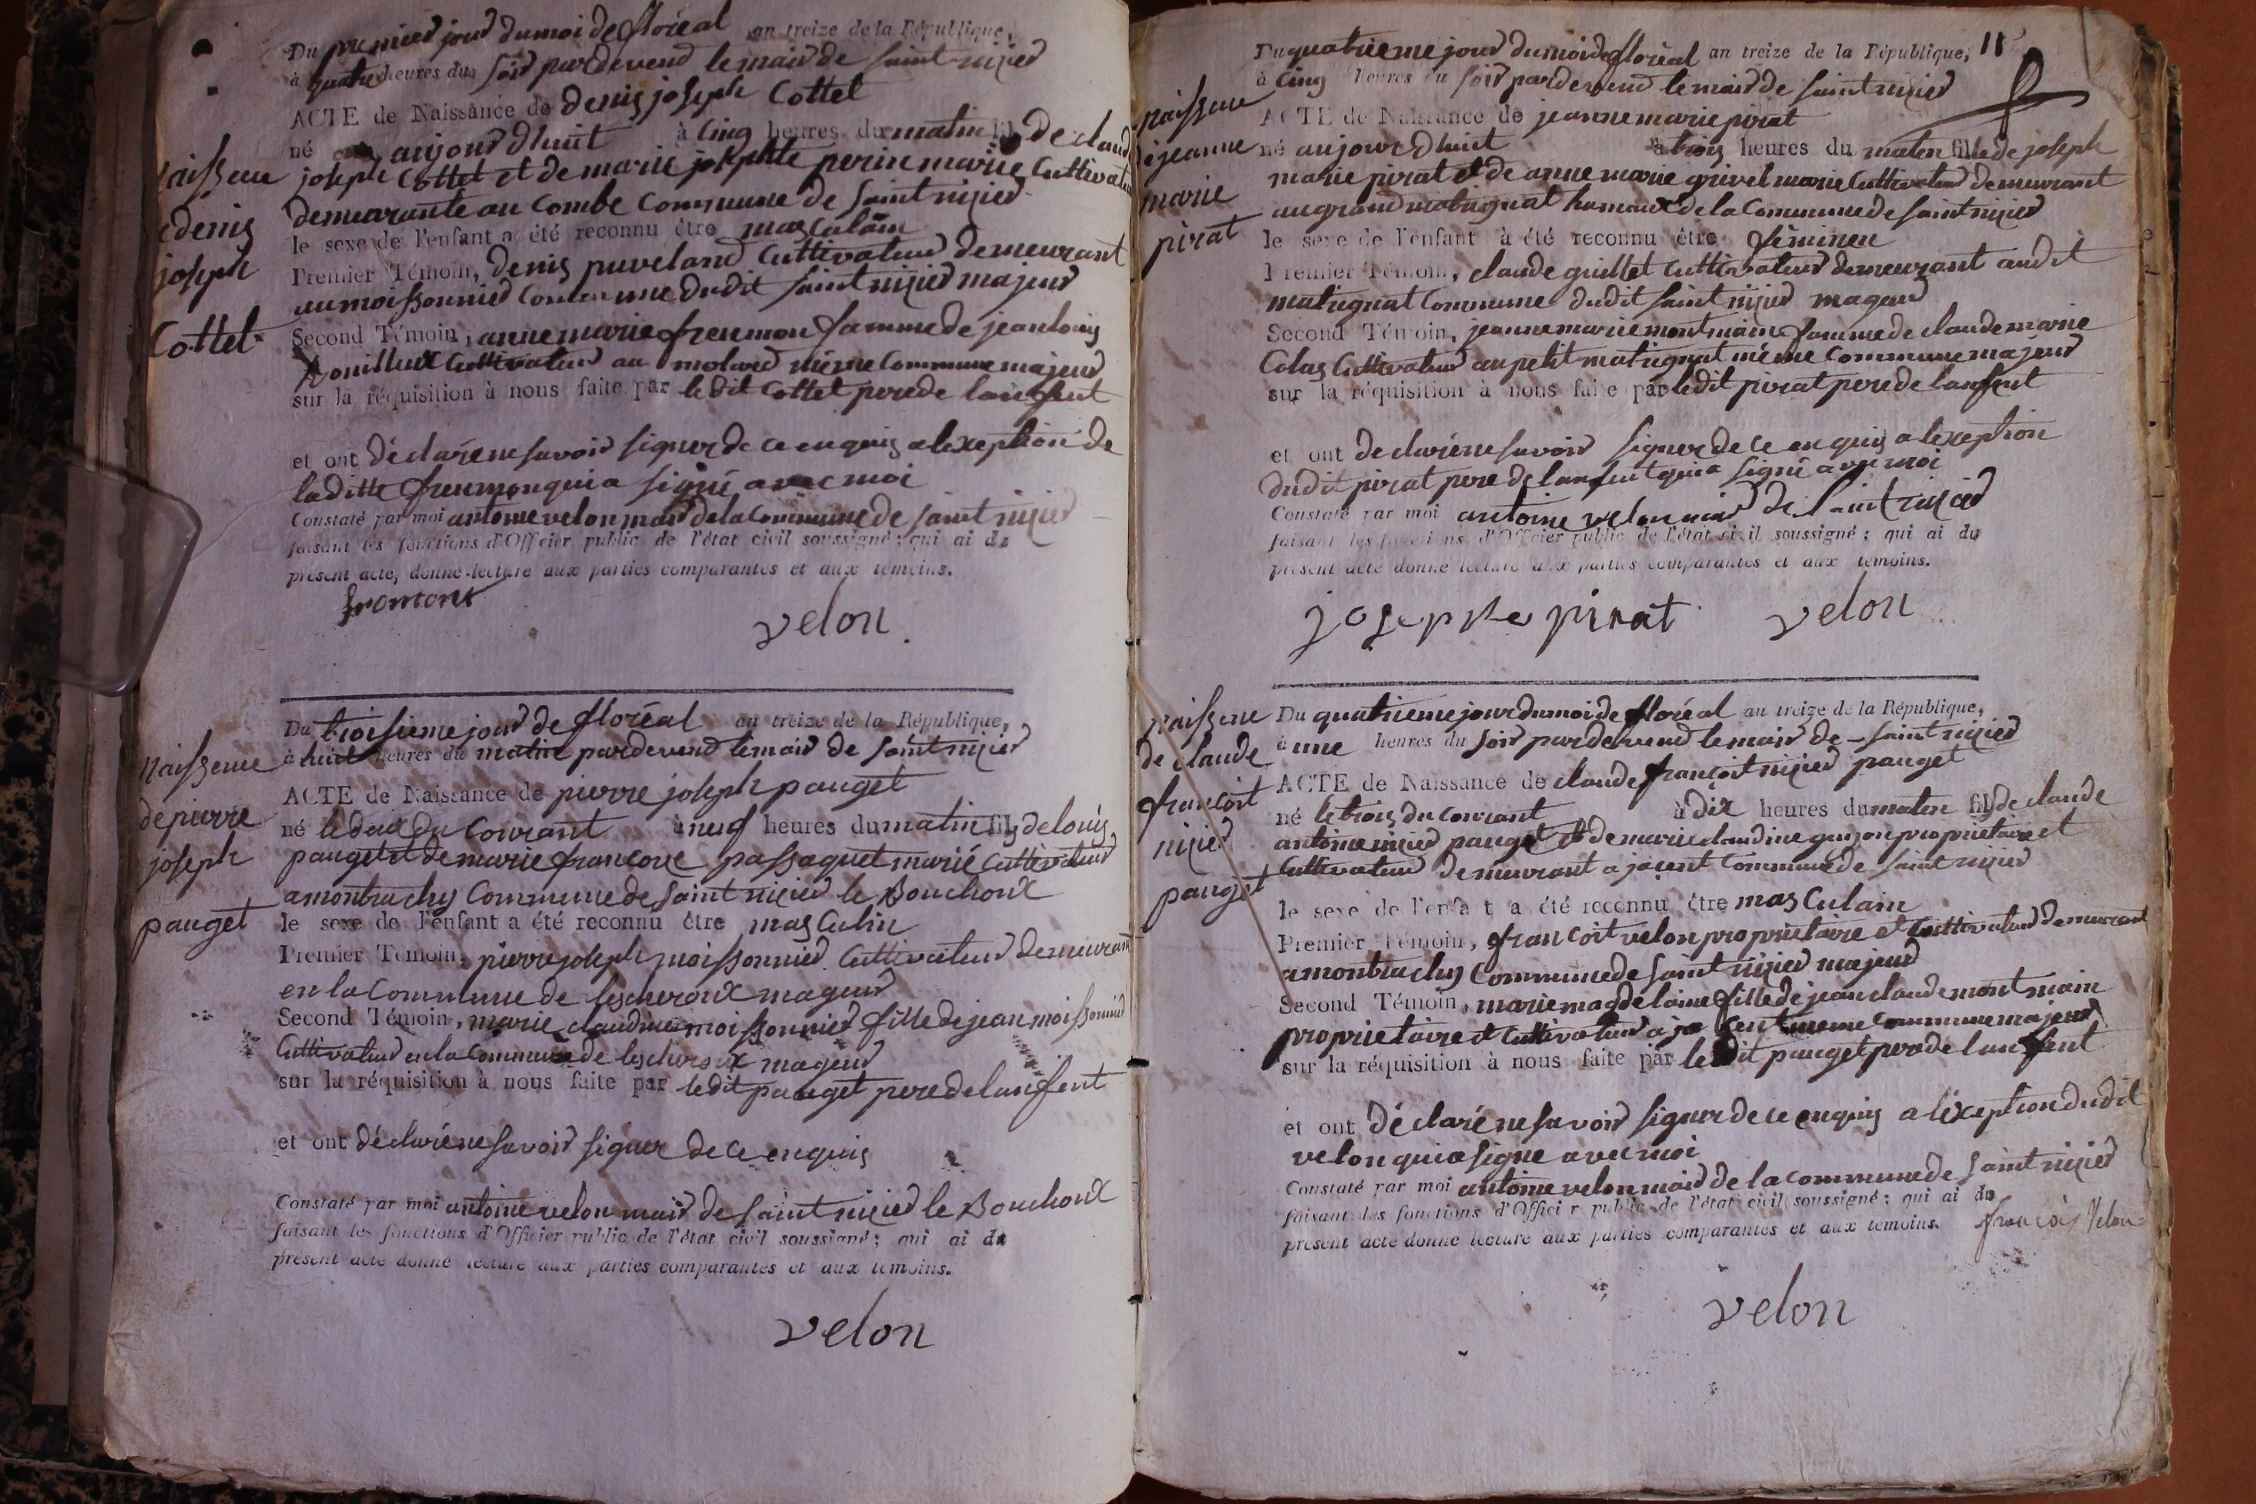 Du premier jour du moi de floréal an treize de la République,
à quatre heures du soir pardevend le maire de saint nizier
ACTE de Naissance de denis joseph Cottet
né aujourdhuit à cinq heures du matin fils de claude
joseph Cottet et de marie josephte perin marié Cultivateur
demeurante au Combe Commune de saint nizier
le sexe de l'enfant a été reconnu être masculain
Premier Témoin, denis puveland Cultivateur demeurant
au moissonnier Commune dudit saint nizier majeur
Second Témoin, anne marie fremon famme de jean louis
Cultivateur au molard même Commune majeur
sur la réquisition à nous faite par ledit Cottet pere de lanfent
et ont déclaré ne savoir signer de ce enquis a lexeption de
laditte fremon qui a signé avec moi
Constaté par moi antoine velon maire de la Commune de saint nizier
faisant les fonctions d'Officier public de l'état civil soussigné; qui ai du
présent acte, donné lecture aux parties comparantes et aux témoins.
fromont
velon
naissence
denis
joseph
Cottet
Du troisieme jour de floréal an treize de la République,
à huit heures du matin pardevend le maire de saint nizier
ACTE de Naissance de pierre joseph pauget
né le deux du Courant à neuf heures du matin fils de louis
pauget et de marie francoise passaquet marié Cultivateur
a montrachy Commune de saint nizier le Bouchoux
le sexe de l'enfant a été reconnu être masculin
Premier Témoin, pierre joseph moissonnier Cultivateur demeurant
en la Commune de lescheroux mageur
Second Témoin, marie claudine moissonnier fille de jean moissonnier
Cultivateur en la Commune de lescheroux mageur
sur la réquisition à nous faite par ledit pauget pere de lanfent
et ont déclaré ne savoir signer de ce enquis
Constaté par moi antoine velon maire de saint nizier le Bouchoux
faisant les fonctions d'Officier public de l'état civil soussigné; qui ai du
présent acte donné lecture aux parties comparantes et aux témoins.
velon
naissence
de pierre
joseph
pauget
11
Du quatrieme jour du moi de floréal an treize de la République,
à cinq heures du soir pardevend le maire de saint nizier
ACTE de Naissance de jeanne marie pirat
né aujourdhuit à trois heures du maten fille de joseph
marie pirat et de anne marie grivel marié Cultivateur demeurant
au grand matignat hameaux de la Commune de saint nizier
le sexe de l'enfant à été reconnu être féminen
Premier Témoin, claude guillet Cultivateur demeurant audit
matignat Commune dudit saint nizier mageur
Second Témoin, jeanne marie montmain famme de claude marie
Colas Cultivateur au petit matignat même Commune majeur
sur la réquisition à nous faite par ledit pirat pere de lanfent
et ont declaré ne savoir signer de ce enquis a lexeption
dudit pirat pere de lanfent qui a signé avec moi
Constaté par moi antoine velon maire de saint nizier
faisant les fonctions d'Officier public de l'état civil soussigné; qui ai du
présent acte donné lecture aux parties comparantes et aux témoins.
joseph pirat velon
naissence
jeanne
marie
pirat
Du quatrieme jour du moi de floréal an treize de la République,
à une heures du soir pardevend le maire de saint nizier
ACTE de Naissance de claude françoit nizier pauget
né le trois du courant à dix heures du maten fils de claude
antoine nizier pauget et de marie claudine guizon proprietaire et
Cultivateur demeurant a jacent Commune de saint nizier
le sexe de l'enfant a été reconnu être masculain
Premier Témoin, françoit velon proprietaire et Cultivateur demeurant
a montrachy Commune de saint nizier majeur
Second Témoin, marie magdelaine fille de jean claude montmain
proprietaire et Cultivateur a jacent meme Commune majeur
sur la réquisition à nous faite par ledit pauget pere de lanfent
et ont déclaré ne savoir signer de ce enquis a lexeption dudit
velon qui a signe avec moi
Constaté par moi antoine velon maire de la Commune de saint nizier
faisant les fonctions d'Officier public de l'état civil soussigné; qui ai du
présent acte donné lecture aux parties comparantes et aux témoins. françois velon
velon
naissence
de claude
françoit
nizier
pauget